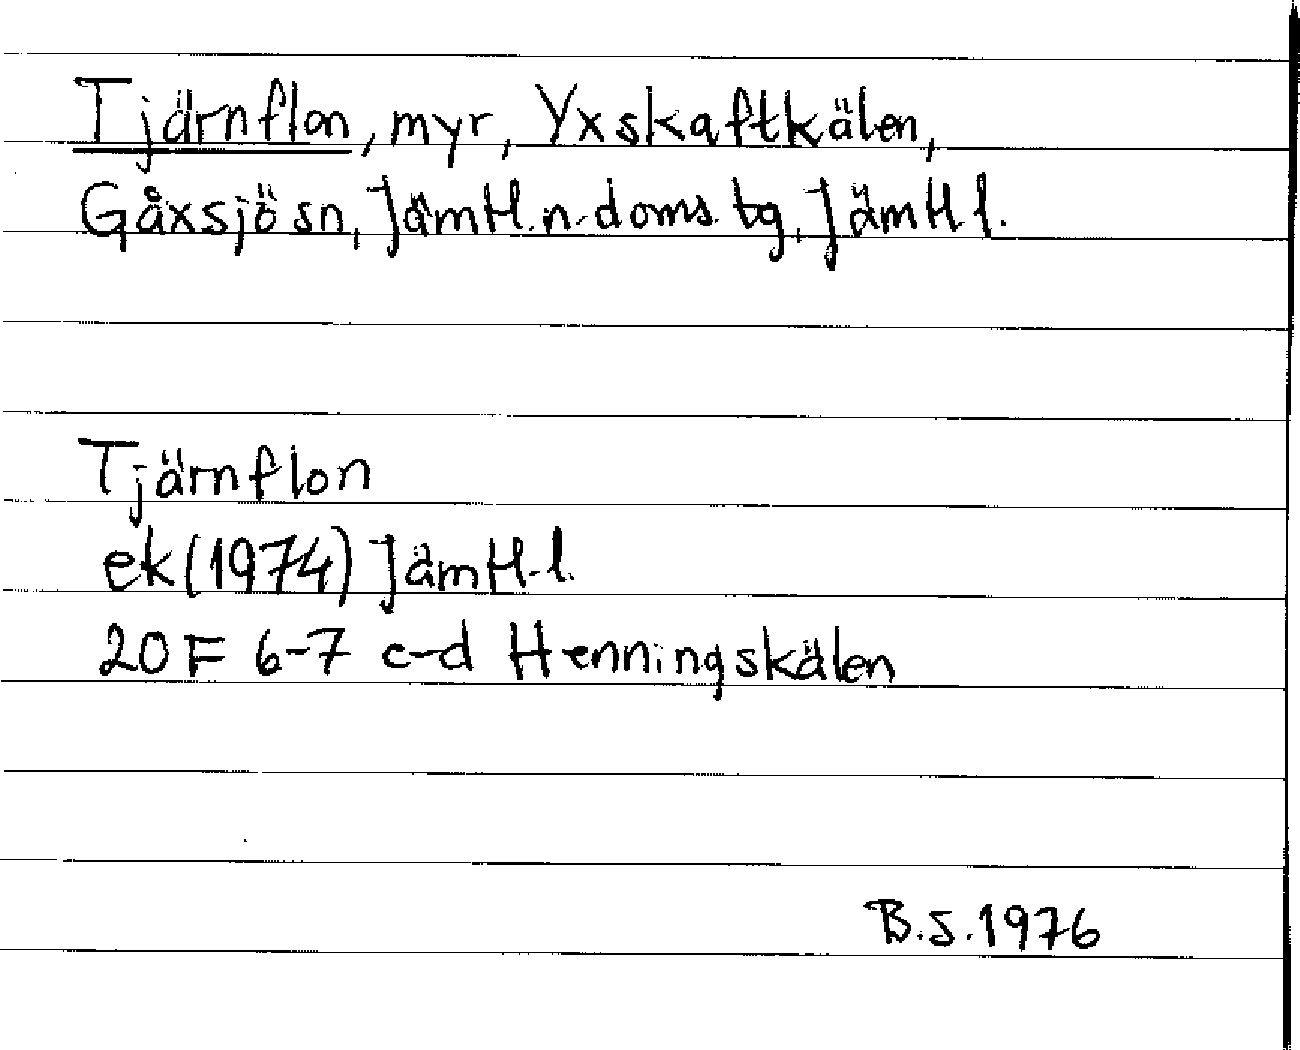 Tjärnflon, myr, Yxskaftkälen,
Gåxsjö sn, Jämtl.n.doms.tg, Jämtl l.
Tjärnflon
ek(1974) Jämtl.l.
20F 6-7 c-d Henningskälen
B.S.1976